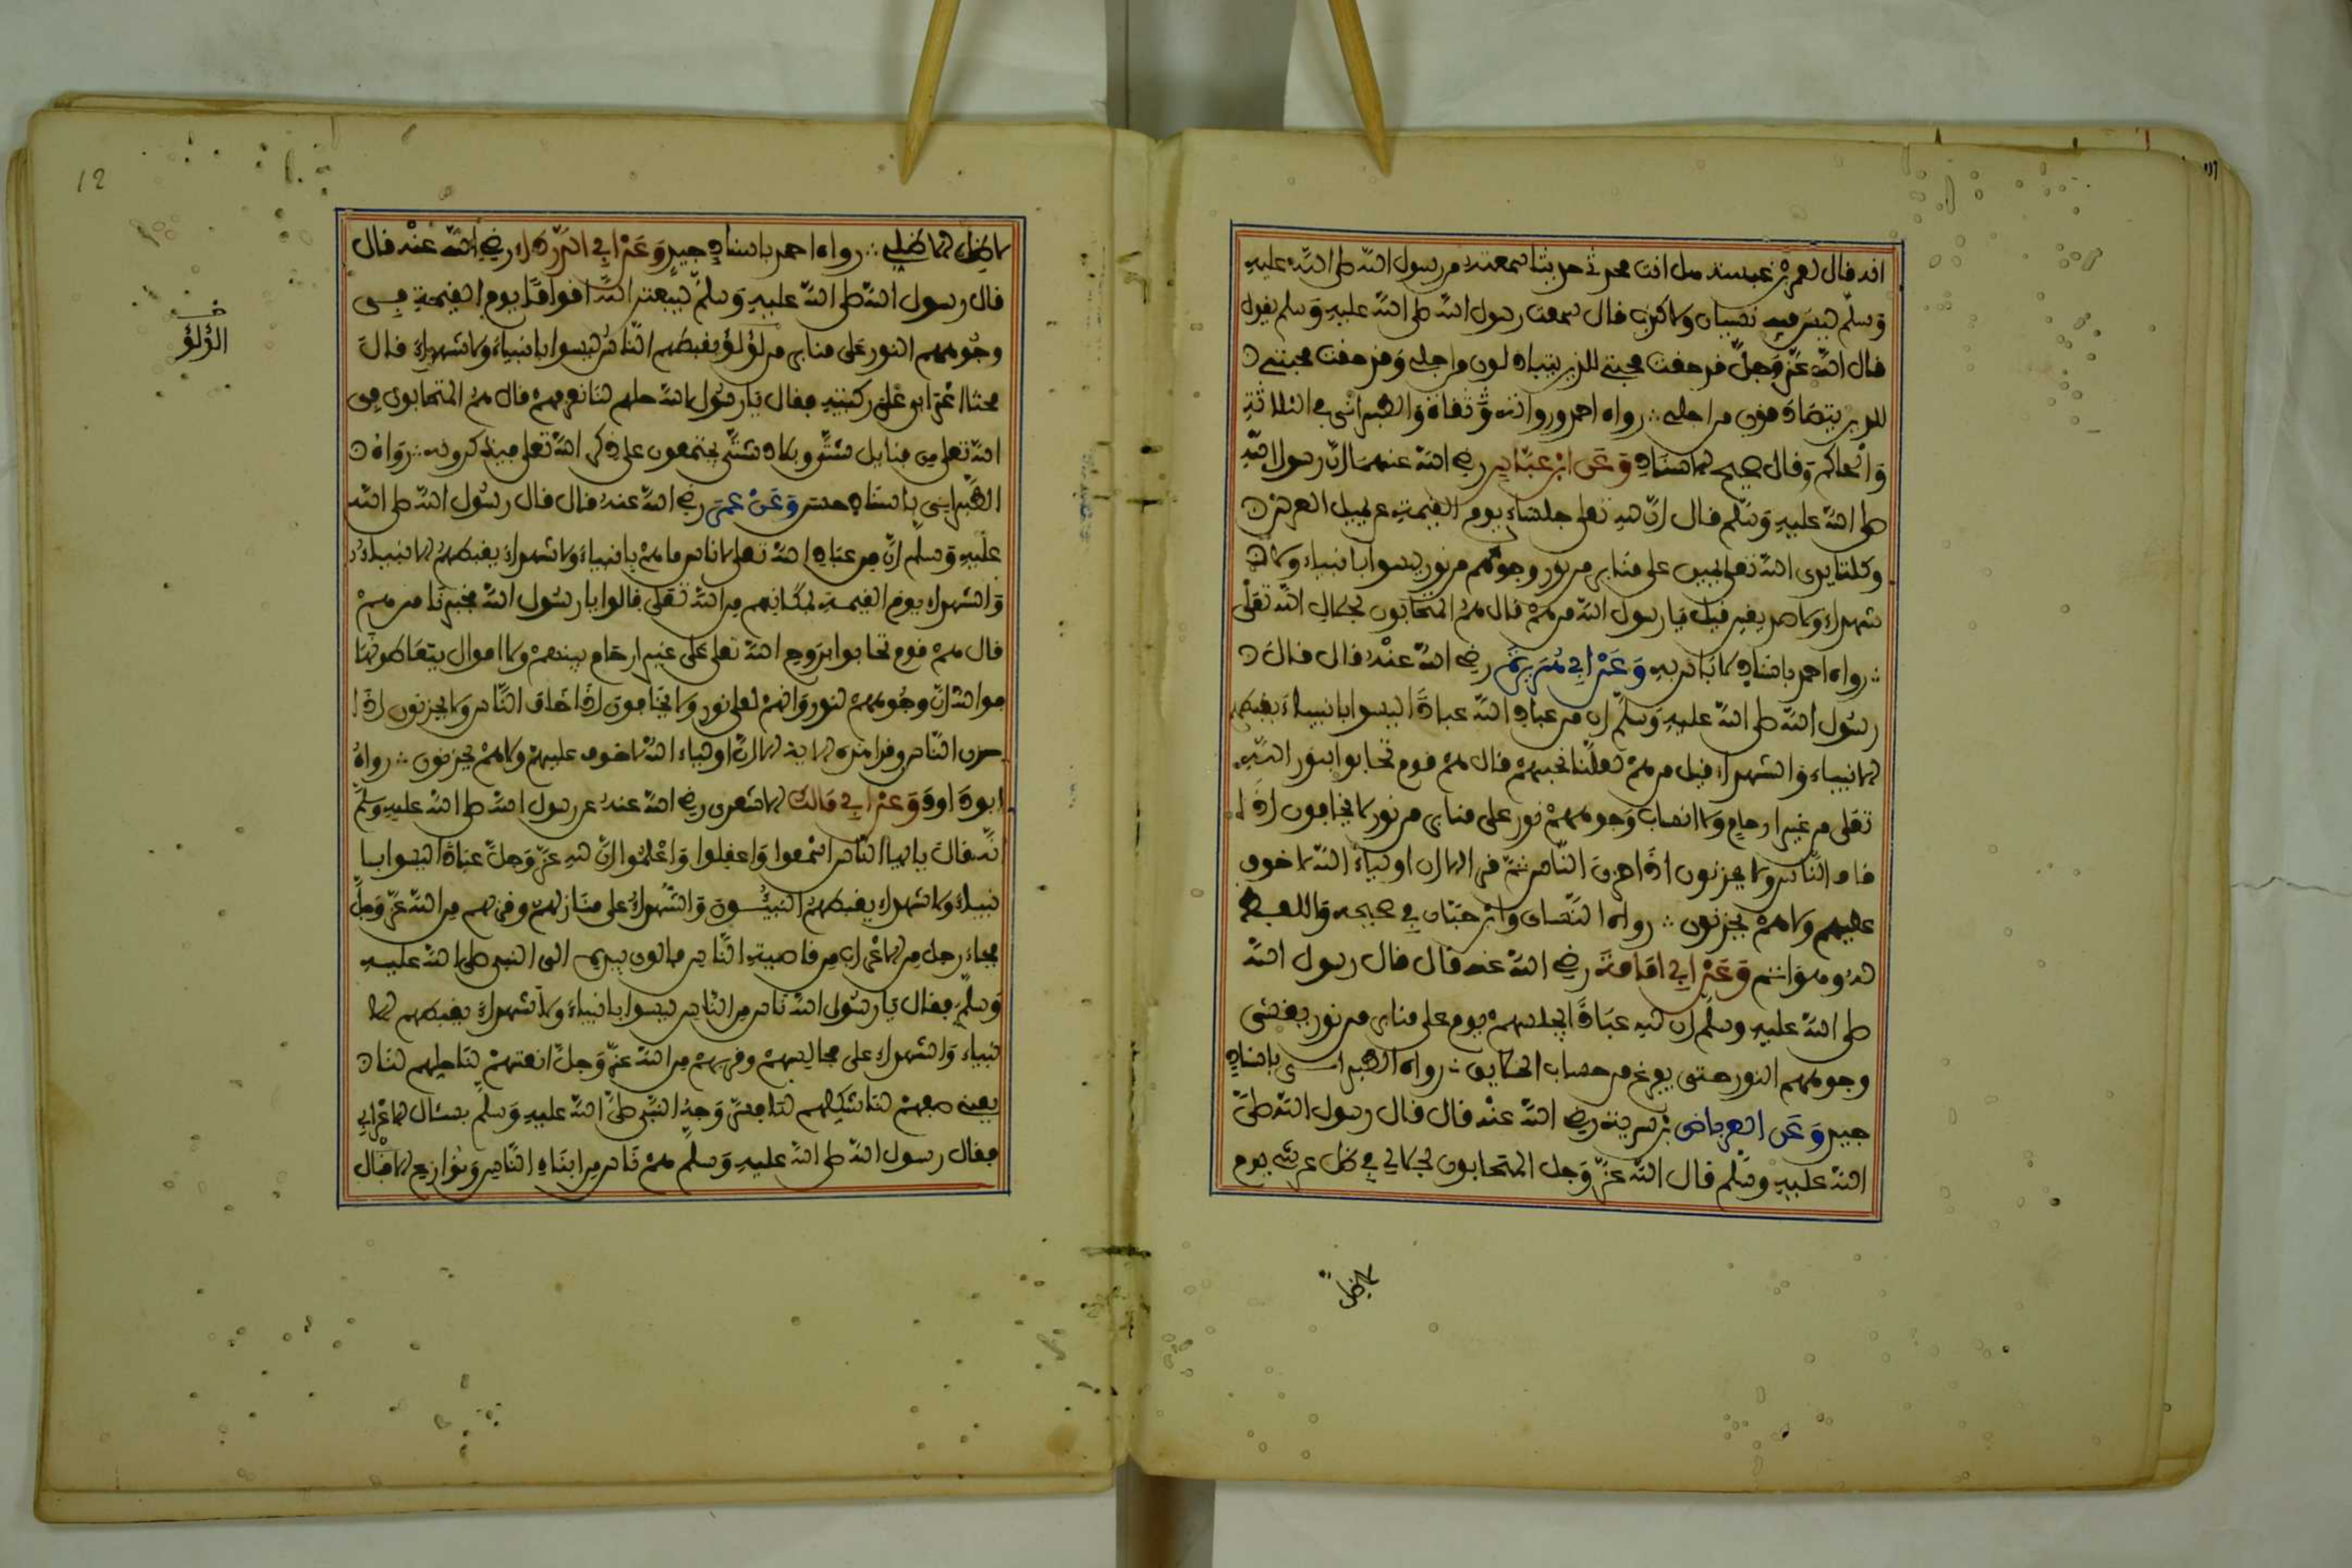 انه قال لعمرو بن عبسة هل انت محدثي حديثا سمعته من رسول الله صلى الله عليه
وسلم ليس فيه نسيان ولا كذب قال سمعت رسول الله صلى الله عليه وسلم يقول
قال الله عز وجل قد حقت محبتي للذين يتباذلون من اجلي وقد حقت محبتي
للذين يتصادقون من اجلي رواه احمد ورواته ثقاة والطبراني في الثلاثة
والحاكم وقال صحيح الاسناد وعن ابن عباس رضي الله عنهما ان رسول الله
صلى الله عليه وسلم قال ان لله تعلى جلساء يوم القيمة عن يمين العرش
وكلتا يدى الله تعلى يمين على منابر من نور وجوههم من نور ليسوا بانبياء ولا
شهداء ولا صديقين قيل يا رسول الله من هم قال هم المتحابون بجلال الله تعلى
رواه احمد باسناد لا باس به وعن ابي هريرة رضي الله عنه قال قال
رسول الله صلى الله عليه وسلم ان من عباد الله عبادا ليسوا بانبياء يغبطهم
الانبياء والشهداء قيل من هم لعلنا نحبهم قال هم قوم تحابوا بنور الله
تعلى من غير ارحام ولا انساب وجوههم نور على منابر من نور لا يخافون اذا
خاف الناس ولا يحزنون اذا حزن الناس ثم قرا الا ان اولياء الله لا خوف
عليهم ولا هم يحزنون رواه النساى وابن حبان في صحيحه واللفظ
له وهو اتم وعن ابي امامة رضي الله عنه قال قال رسول الله
صلى الله عليه وسلم ان لله عبادا يجلسهم يوم على منابر من نور يغشى
وجوههم النور حتى يفرغ من حساب الخلايق رواه الطبراني باسناد
جيد وعن العرباض بن سرية رضي الله عنه قال قال رسول الله صلى
الله عليه وسلم قال الله عز وجل المتحابون بجلالي في ظل عرشي يوم
لا ظل
لا ظل الا ظلي رواه احمد باسناد جيد وعن ابي الدرداء رضي الله عنه قال
قال رسول الله صلى الله عليه وسلم ليبعثن الله اقواما يوم القيمة في
وجوههم النور على منابر من لؤلؤ يغبطهم الناس ليسوا بانبياء ولا شهداء قال
اللؤلؤ
فجثا اعرابي على ركبتيه فقال يا رسول الله حلهم لنا نعرفهم قال هم المتحابون في
الله تعلى من قبايل شتى وبلاد شتى يجتمعون على ذكر الله تعلى فيذكرونه رواه
الطبراني باسناد حسن وعن عمر رضي الله عنه قال قال رسول الله صلى الله
عليه وسلم ان من عباد الله تعلى لاناس ما هم بانبياء ولا شهداء يغبطهم الانبياء
والشهداء يوم القيمة بمكانهم من الله تعلى قالوا يا رسول الله فخبرنا من هم
قال هم قوم تحابوا بروح الله تعلى على غير ارحام بينهم ولا اموال يتعاطونها
فوالله ان وجوههم لنور وانهم لعلى نور ولا يخافون اذا خاف الناس ولا يحزنون اذا
حزن الناس وقرا هذه الاية الا ان اولياء الله لا خوف عليهم ولا هم يحزنون رواه
ابو داود وعن ابي مالك الاشعرى رضي الله عنه عن رسول الله صلى الله عليه وسلم
انه قال يا ايها الناس اسمعوا واعقلوا واعلموا ان لله عز وجل عبادا ليسوا با
نبياء ولا شهداء يغبطهم النبيئون والشهداء على منازلهم وقربهم من الله عز وجل
فجاء رجل من الاعراب من قاصية الناس والوى بيده الى النبي صلى الله عليه
وسلم فقال يا رسول الله ناس من الناس ليسوا بانبياء ولا شهداء يغبطهم الا
نبياء والشهداء على مجالسهم وقربهم من الله عز وجل انعتهم لنا حلهم لنا
يعني صفهم لنا شكلهم لنا فسر وجه النبي صلى الله عليه وسلم بسئال الاعرابي
فقال رسول الله صلى الله عليه وسلم هم ناس من ابناء الناس ونوازع القبال
12